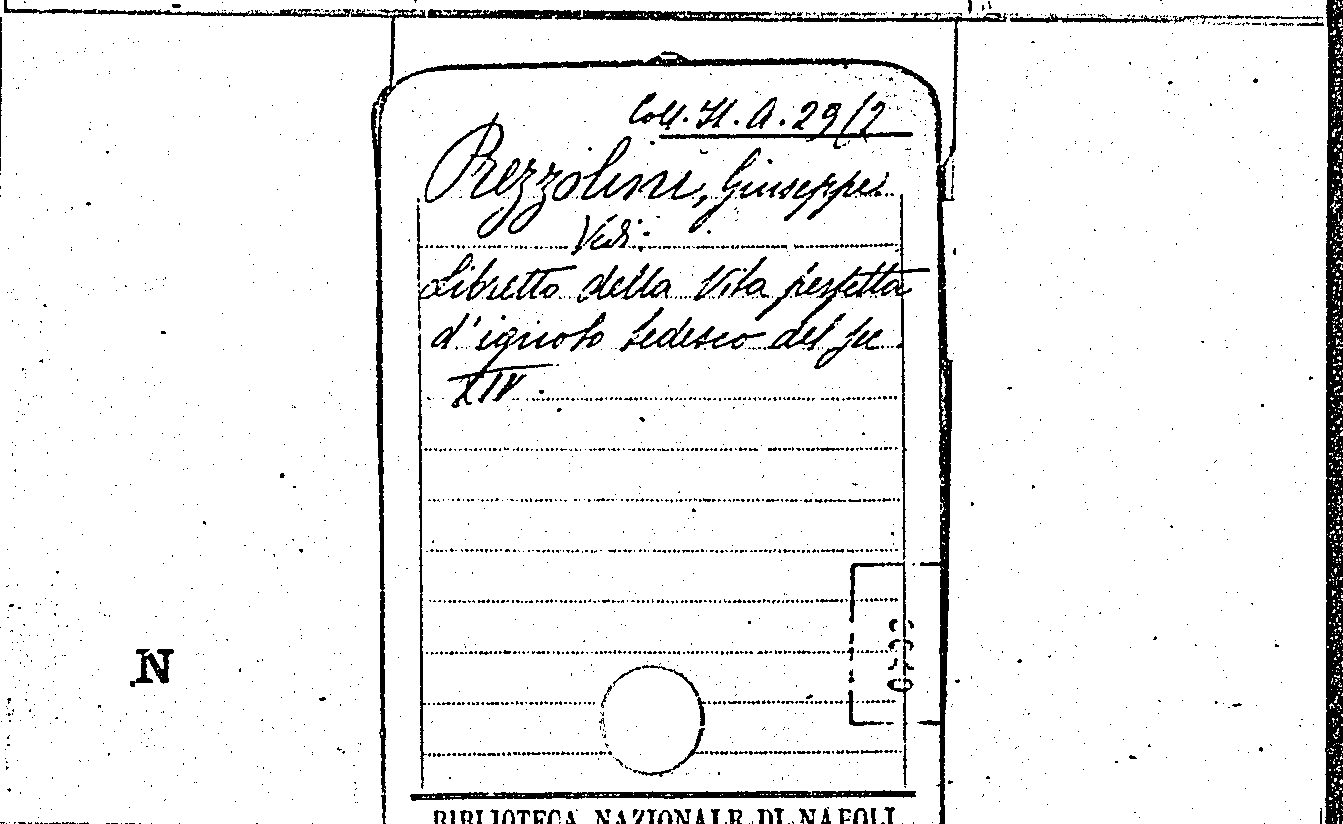 Coll. It. A. 29/2
Prezzolini, Giuseppe.
Vedi:
Libretto della Vita perfetta
d'ignoto tedesco del sec.
XIV.
N
BIBLIOTECA NAZIONALE DI NAPOLI